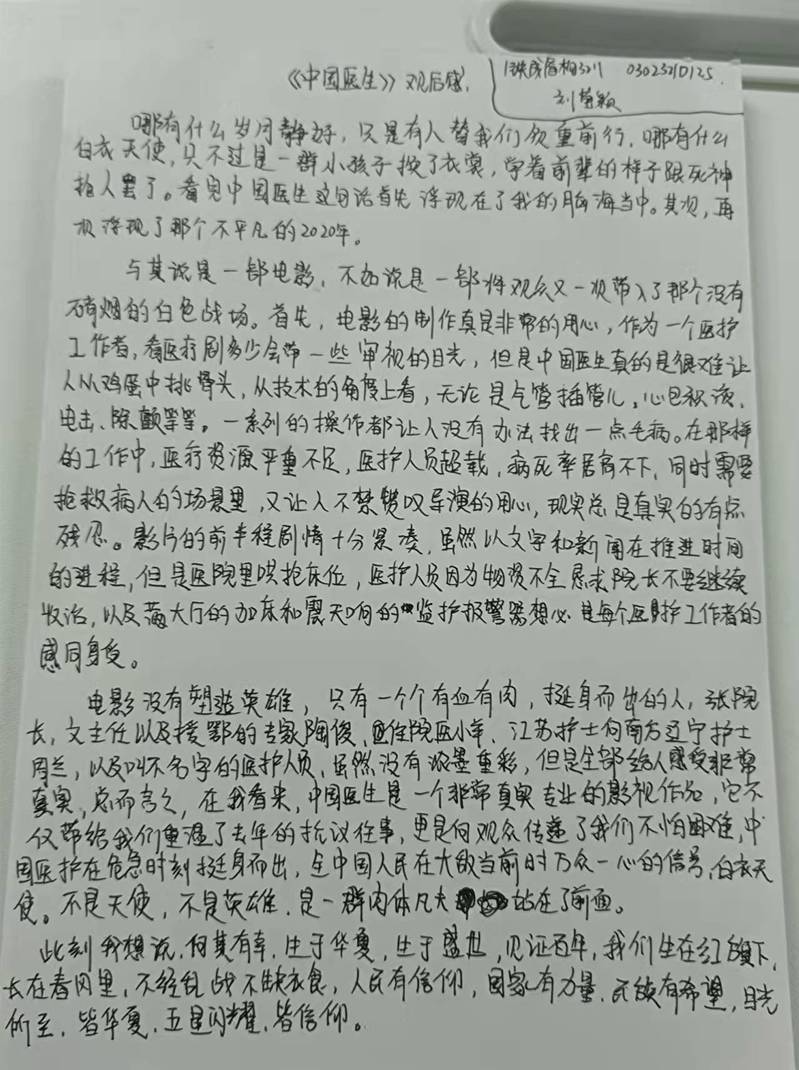 《中国医生》观后感
03023210125
哪有什么岁月静好，只是有人替我们负重前行，哪有什么
白衣天使，只不过是一群小孩子换了衣裳，学着前辈的样子跟死神
抢人罢了。看完中国医生这句话首先浮现在了我的脑海当中。其次，再
次浮现了那个不平凡的2020年。
与其说是一部电影，不如说是一部将观众又一次带入了那个没有
硝烟的白色战场。首先，电影的制作真是非常的用心，作为一个医护
工作者，看医疗剧多少会带一些审视的目光，但是中国医生真的是很难让
人从鸡蛋中挑骨头，从技术的角度上看，无论是气管插管儿，心包积液，
电击、除颤等等。一系列的操作都让人没有办法找出一点毛病。在那样
的工作中，医疗资源严重不足，医护人员超载，病死率居高不下，同时需要
抢救病人的场景里，又让人不禁赞叹导演的用心，现实总是真实的有点
残忍。影片的前半程剧情十分紧凑，虽然以文字和新闻在推进时间
的进程，但是医院里哄抢床位，医护人员因为物资不全恳求院长不要继续
收治，以及满大厅的加床和震天响的监护报警器想必是每个医护工作者的
感同身受。
电影没有塑造英雄，只有一个个有血有肉，挺身而出的人，张院
长，文主任以及援鄂的专家陶俊、住院医小羊、江苏护士何南方辽宁护士
周兰，以及叫不名字的医护人员，虽然没有浓墨重彩，但是全部给人感受非常
真实，总而言之，在我看来，中国医生是一个非常真实专业的影视作品，它不
仅带给我们重温了去年的抗议往事，更是向观众传递了我们不怕困难，中
国医护在危急时刻挺身而出，全中国人民在大敌当前时万众一心的信号，白衣天
使。不是天使，不是英雄，是一群肉体凡夫站在了前面。
此刻我想说，何其有幸，生于华夏，生于盛世，见证百年，我们生在红旗下，
长在春风里，不经乱战不缺衣食，人民有信仰，国家有力量，民族有希望，目光
所至，皆华夏，五星闪耀，皆信仰。